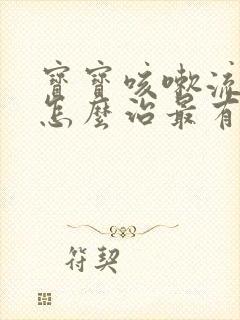 寶寶咳嗽流
怎麼治最有
符契